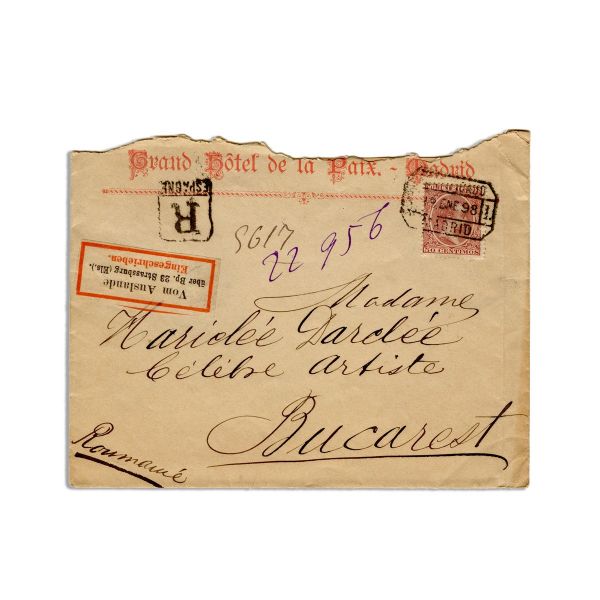 Grand Hôtel de la Paix. - Madrid
R
ESPAGNE
CERTIFICADO
ENE 98
MADRID
CENTIMOS
5617
22956
Vom Auslande
über Bp. 23 Strassburg (Els.).
Eingeschrieben.
Madame
Hariclée Darclée
Célébre Artiste
Bucarest
Roumanie